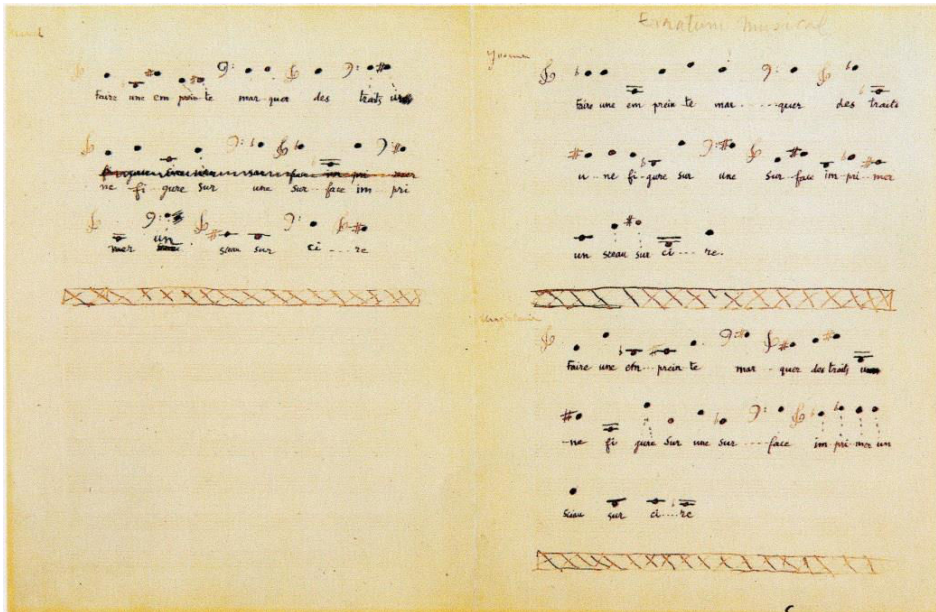 Erratum Musical
Faire une em prein te mar quer des traits
ne fi gure sur une sur face im pri
mer un sceau sur ci .... re
Yvonne
Faire une em prein te mar .... quer des traits
u .. ne fi gure sur une sur .. face im pri mer
un sceau sur ci .... re.
Magdeleine
Faire une em .. prein te mar .. quer des traits u
ne fi gure sur une sur .... face im pri mer un
sceau sur ci .... re